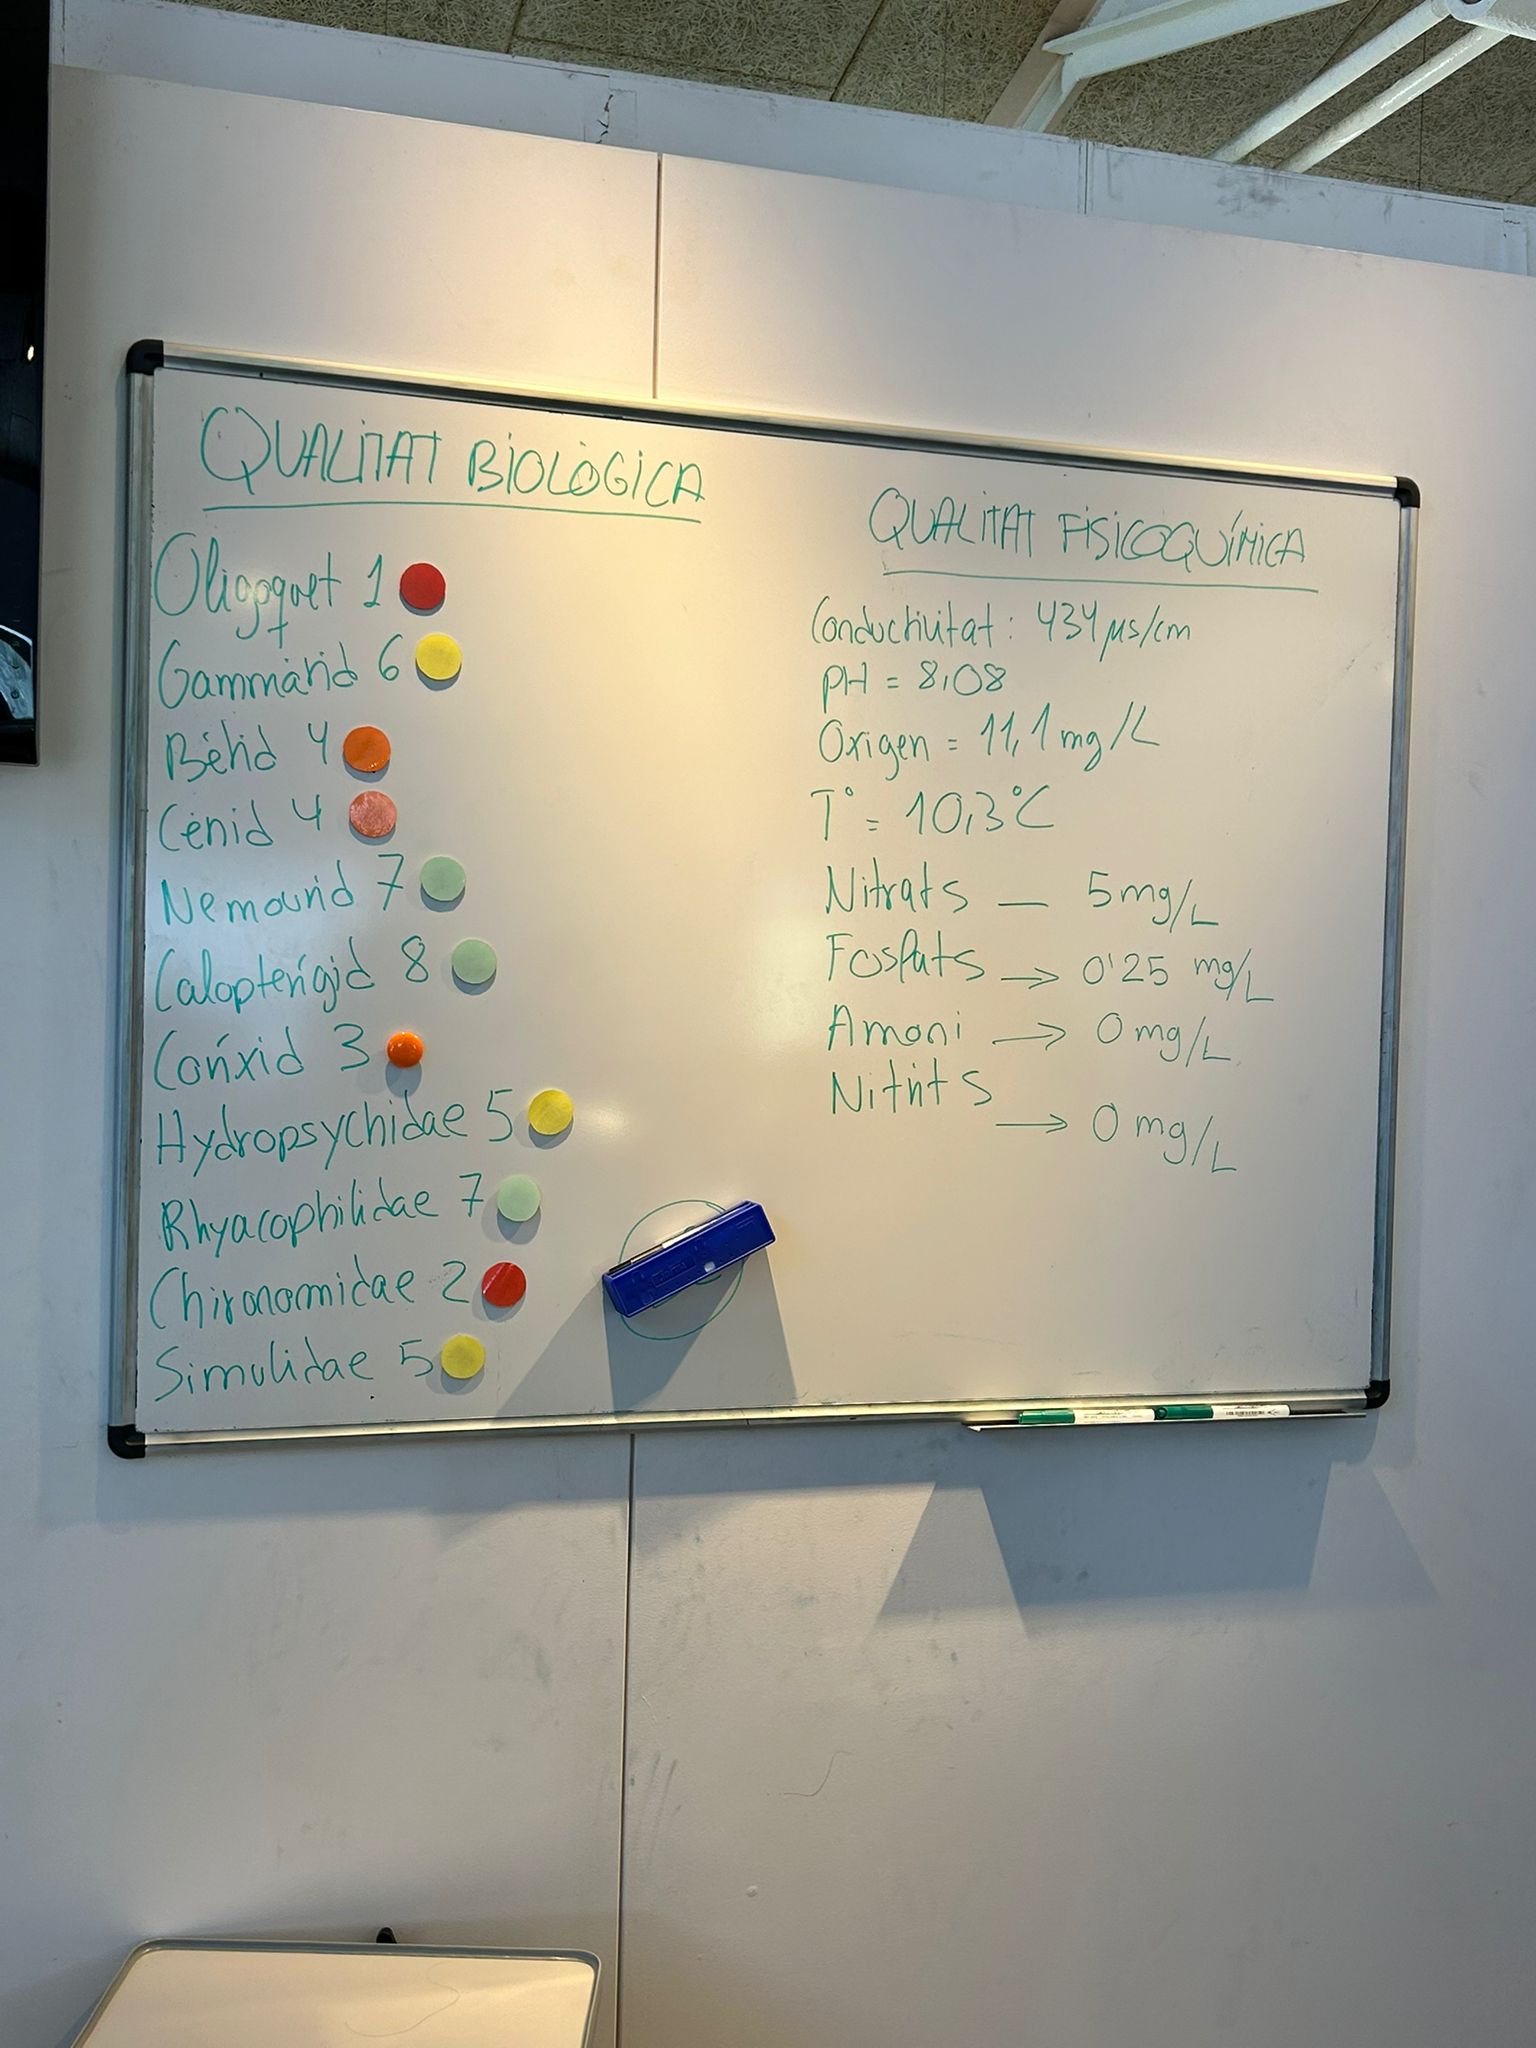 QUALITAT BIOLÒGICA
Oligoquet 1
Gammàrid 6
Bètid 4
Cènid 4
Nemourid 7
Calopterígid 8
Coríxid 3
Hydropsychidae 5
Rhyacophilidae 7
Chironomidae 2
Simulidae 5
QUALITAT FISICOQUÍMICA
Conductivitat: 434 µs/cm
pH = 8,08
Oxigen = 11,1 mg/L
T° = 10,3°C
Nitrats — 5 mg/L
Fosfats → 0'25 mg/L
Amoni → 0 mg/L
Nitrits → 0 mg/L